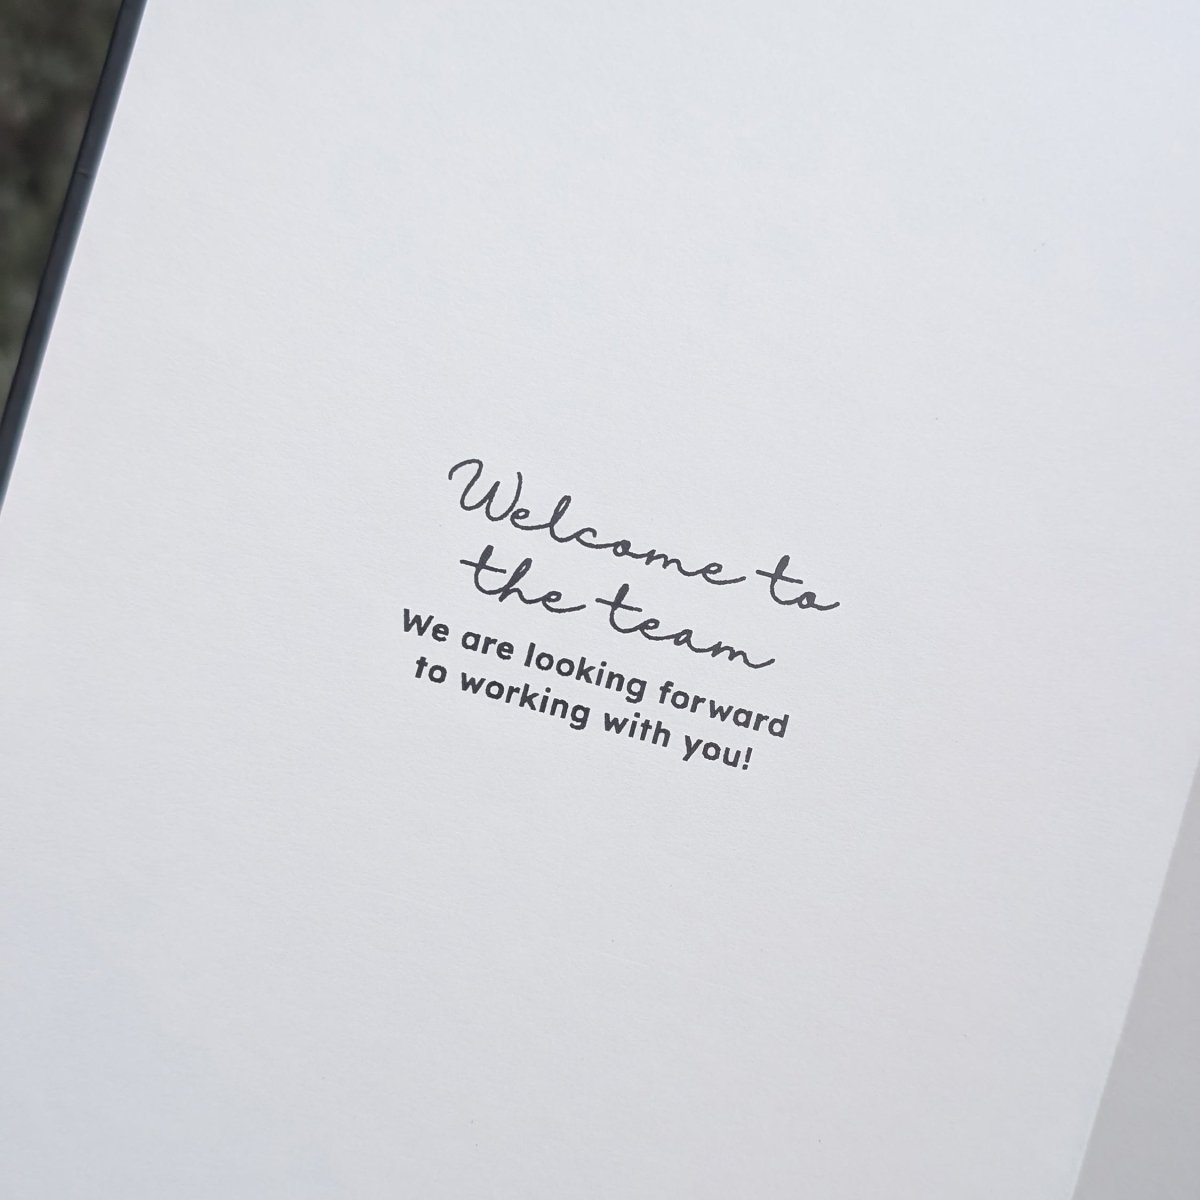 Welcome to
the team
We are looking forward
to working with you!